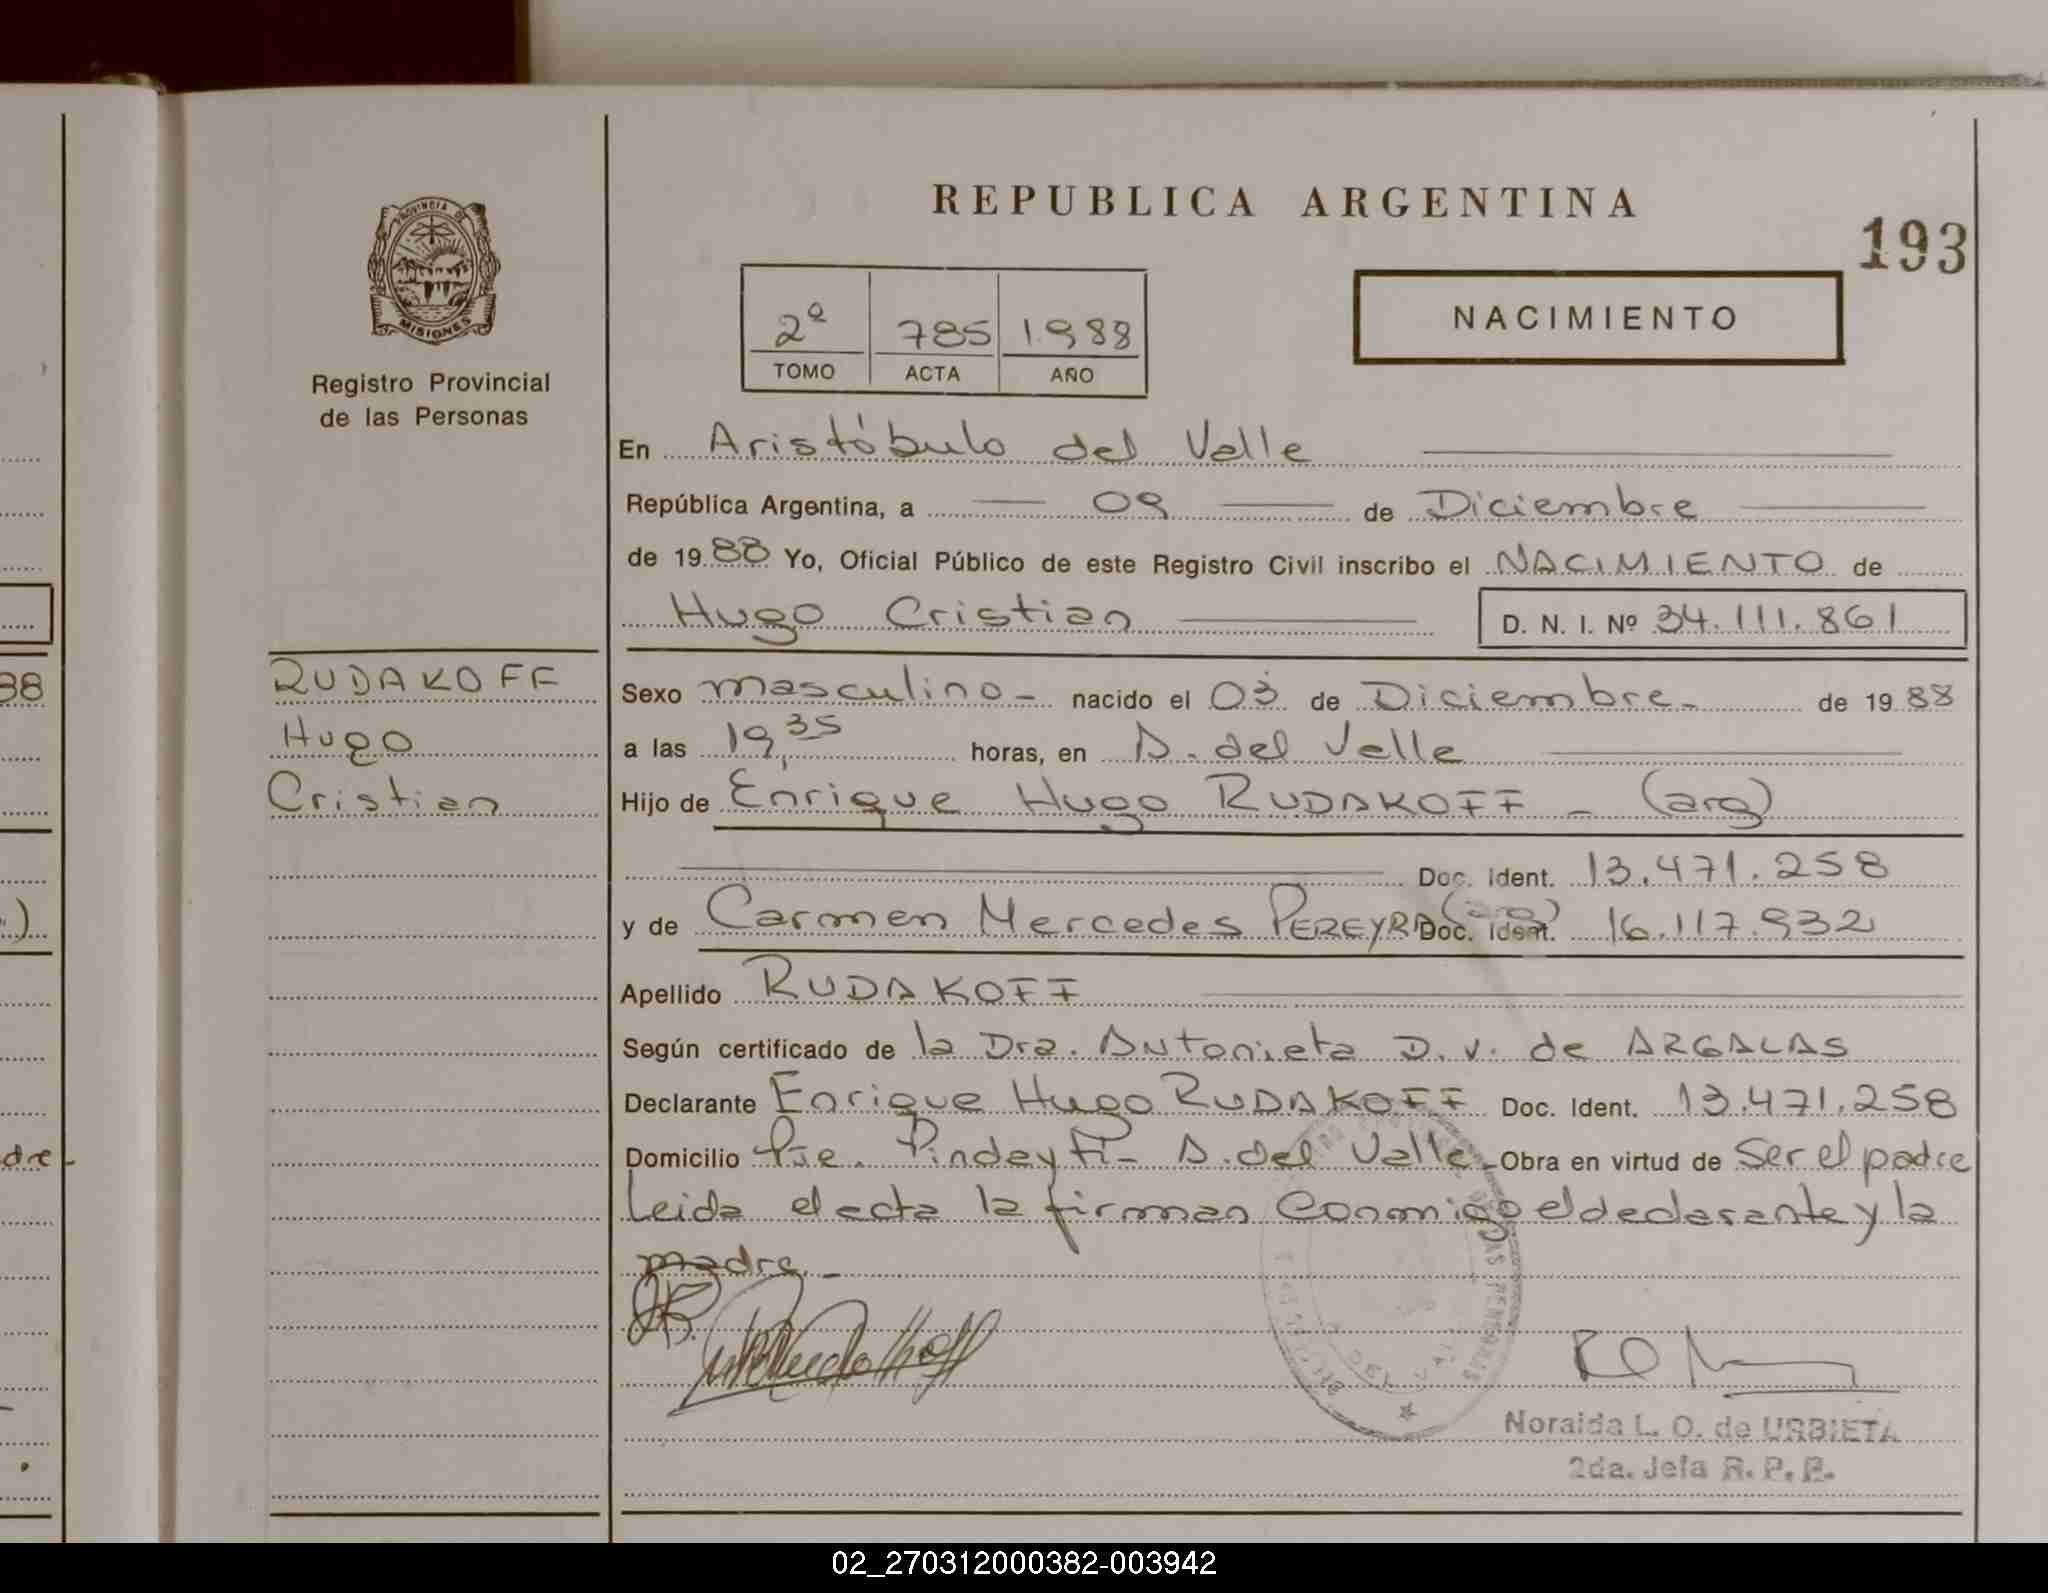 REPUBLICA ARGENTINA
193
PROVINCIA DE
MISIONES
Registro Provincial
de las Personas
2º 785 1.988
TOMO ACTA AÑO
NACIMIENTO
En Aristóbulo del Valle
República Argentina, a 09 de Diciembre
de 19 88 Yo, Oficial Público de este Registro Civil inscribo el NACIMIENTO de
Hugo Cristian D. N. I. Nº 34.111.861
RUDAKOFF
Hugo
Cristian
Sexo masculino- nacido el 03 de Diciembre- de 19 88
a las 19,35 horas, en A. del Valle
Hijo de Enrique Hugo RUDAKOFF - (arg)
Doc. Ident. 13.471.258
y de Carmen Mercedes PEREYRA (arg) Doc. Ident. 16.117.932
Apellido RUDAKOFF
Según certificado de la Dra. Antonieta D. v. de ARGALAS
Declarante Enrique Hugo RUDAKOFF Doc. Ident. 13.471.258
Domicilio Pje. Pindaytí- A. del Valle- Obra en virtud de Ser el padre
Leida el acta la firman conmigo el declarante y la
madre.-
Noraida L. O. de URBIETA
2da. Jefa R. P. P.
38
dre-
02_270312000382-003942